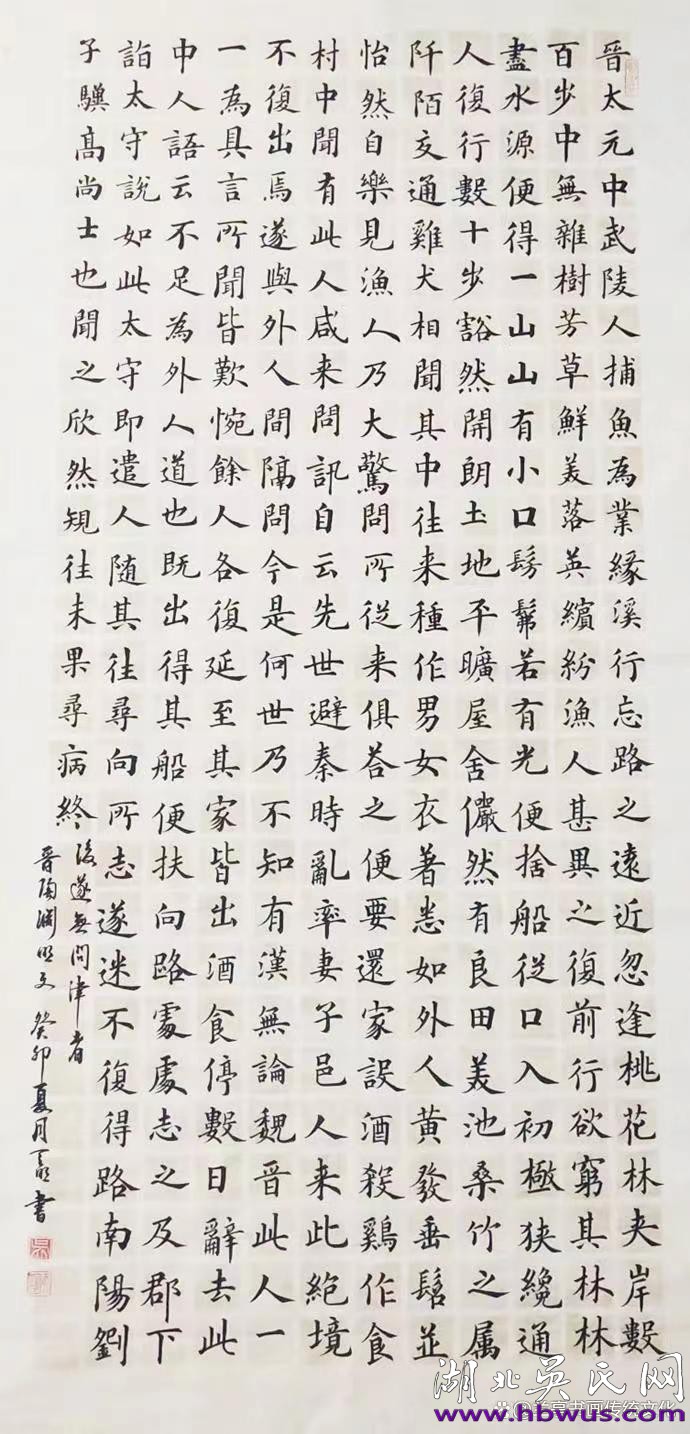 晉太元中武陵人捕魚為業緣溪行忘路之遠近忽逢桃花林夾岸數
百步中無雜樹芳草鮮美落英繽紛漁人甚異之復前行欲窮其林林
盡水源便得一山山有小口髣髴若有光便捨船從口入初極狹纔通
人復行數十步豁然開朗土地平曠屋舍儼然有良田美池桑竹之属
阡陌交通雞犬相聞其中往来種作男女衣著悉如外人黃發垂髫並
怡然自樂見漁人乃大驚問所從来俱荅之便要還家設酒殺鷄作食
村中聞有此人咸来問訊自云先世避秦時亂率妻子邑人来此絕境
不復出焉遂與外人間隔問今是何世乃不知有漢無論魏晉此人一
一為具言所聞皆歎惋餘人各復延至其家皆出酒食停數日辭去此
中人語云不足為外人道也既出得其船便扶向路處處志之及郡下
詣太守說如此太守即遣人随其往尋向所志遂迷不復得路南陽劉
子驥髙尚士也聞之欣然規往未果尋病終
後遂無問津者
晉陶淵明文 癸卯夏月 書
湖北吴氏网
书画传统文化
www.hbwus.com